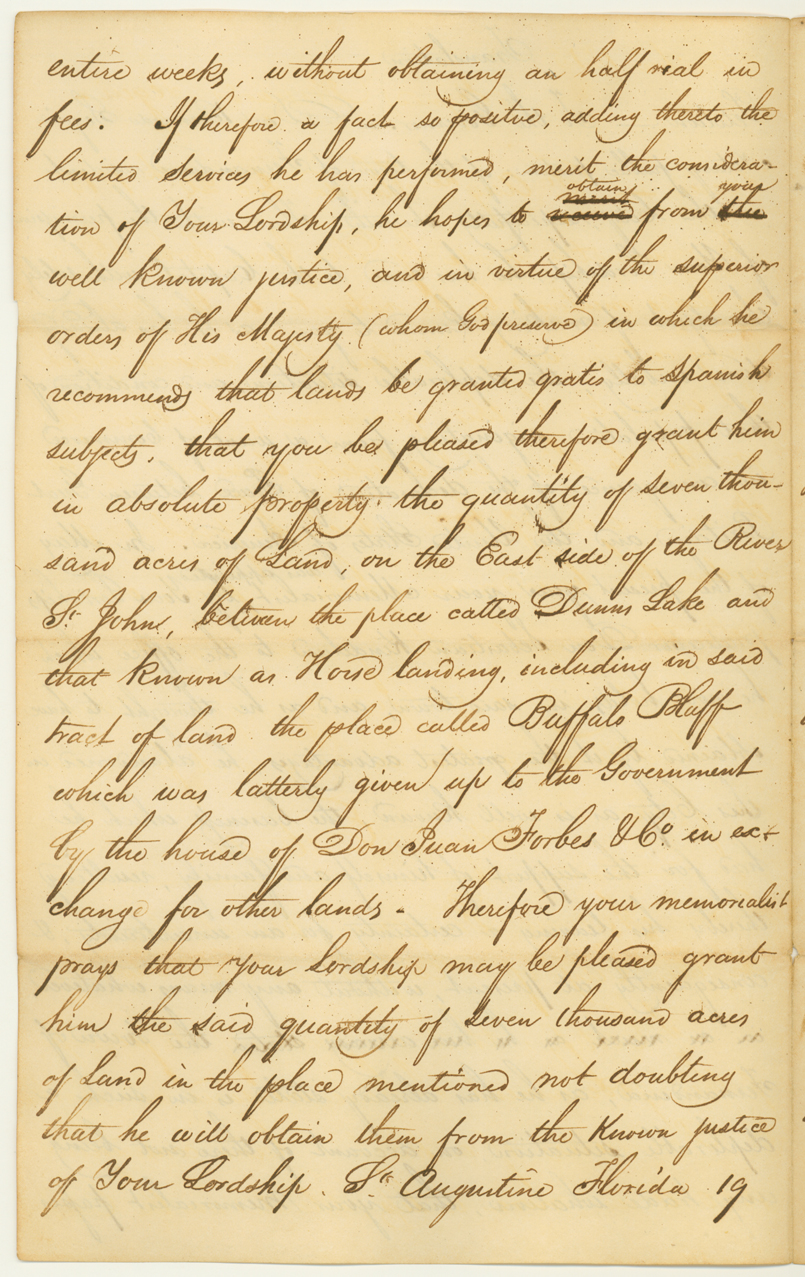 entire weeks, without obtaining an half rial in
fees. If therefore a fact so positive, adding thereto the
limited services he has performed, merit the considera-
tion of Your Lordship, he hopes to obtain from your
well known justice, and in virtue of the superior
orders of His Majesty (whom God preserve) in which he
recommends that lands be granted gratis to Spanish
subjects, that you be pleased therefore grant him
in absolute property the quantity of seven thou-
sand acres of Land, on the East side of the River
St. Johns, between the place called Dunns Lake and
that known as Horse landing, including in said
tract of land the place called Buffalo Bluff
which was latterly given up to the Government
by the house of Don Juan Forbes & Co. in ex-
change for other lands. Therefore your memorialist
prays that Your Lordship may be pleased grant
him the said quantity of seven thousand acres
of Land in the place mentioned not doubting
that he will obtain them from the Known justice
of Your Lordship. St. Augustine Florida 19